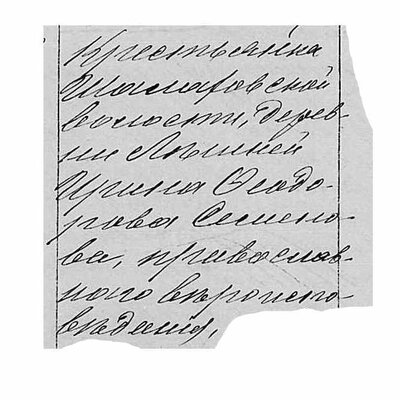 Крестьянка
Шаларовской
волости, дерев-
ни Лѣшней
Ирина Ѳеодо-
рова Семено-
ва, православ-
ного вѣроиспо-
вѣдания,